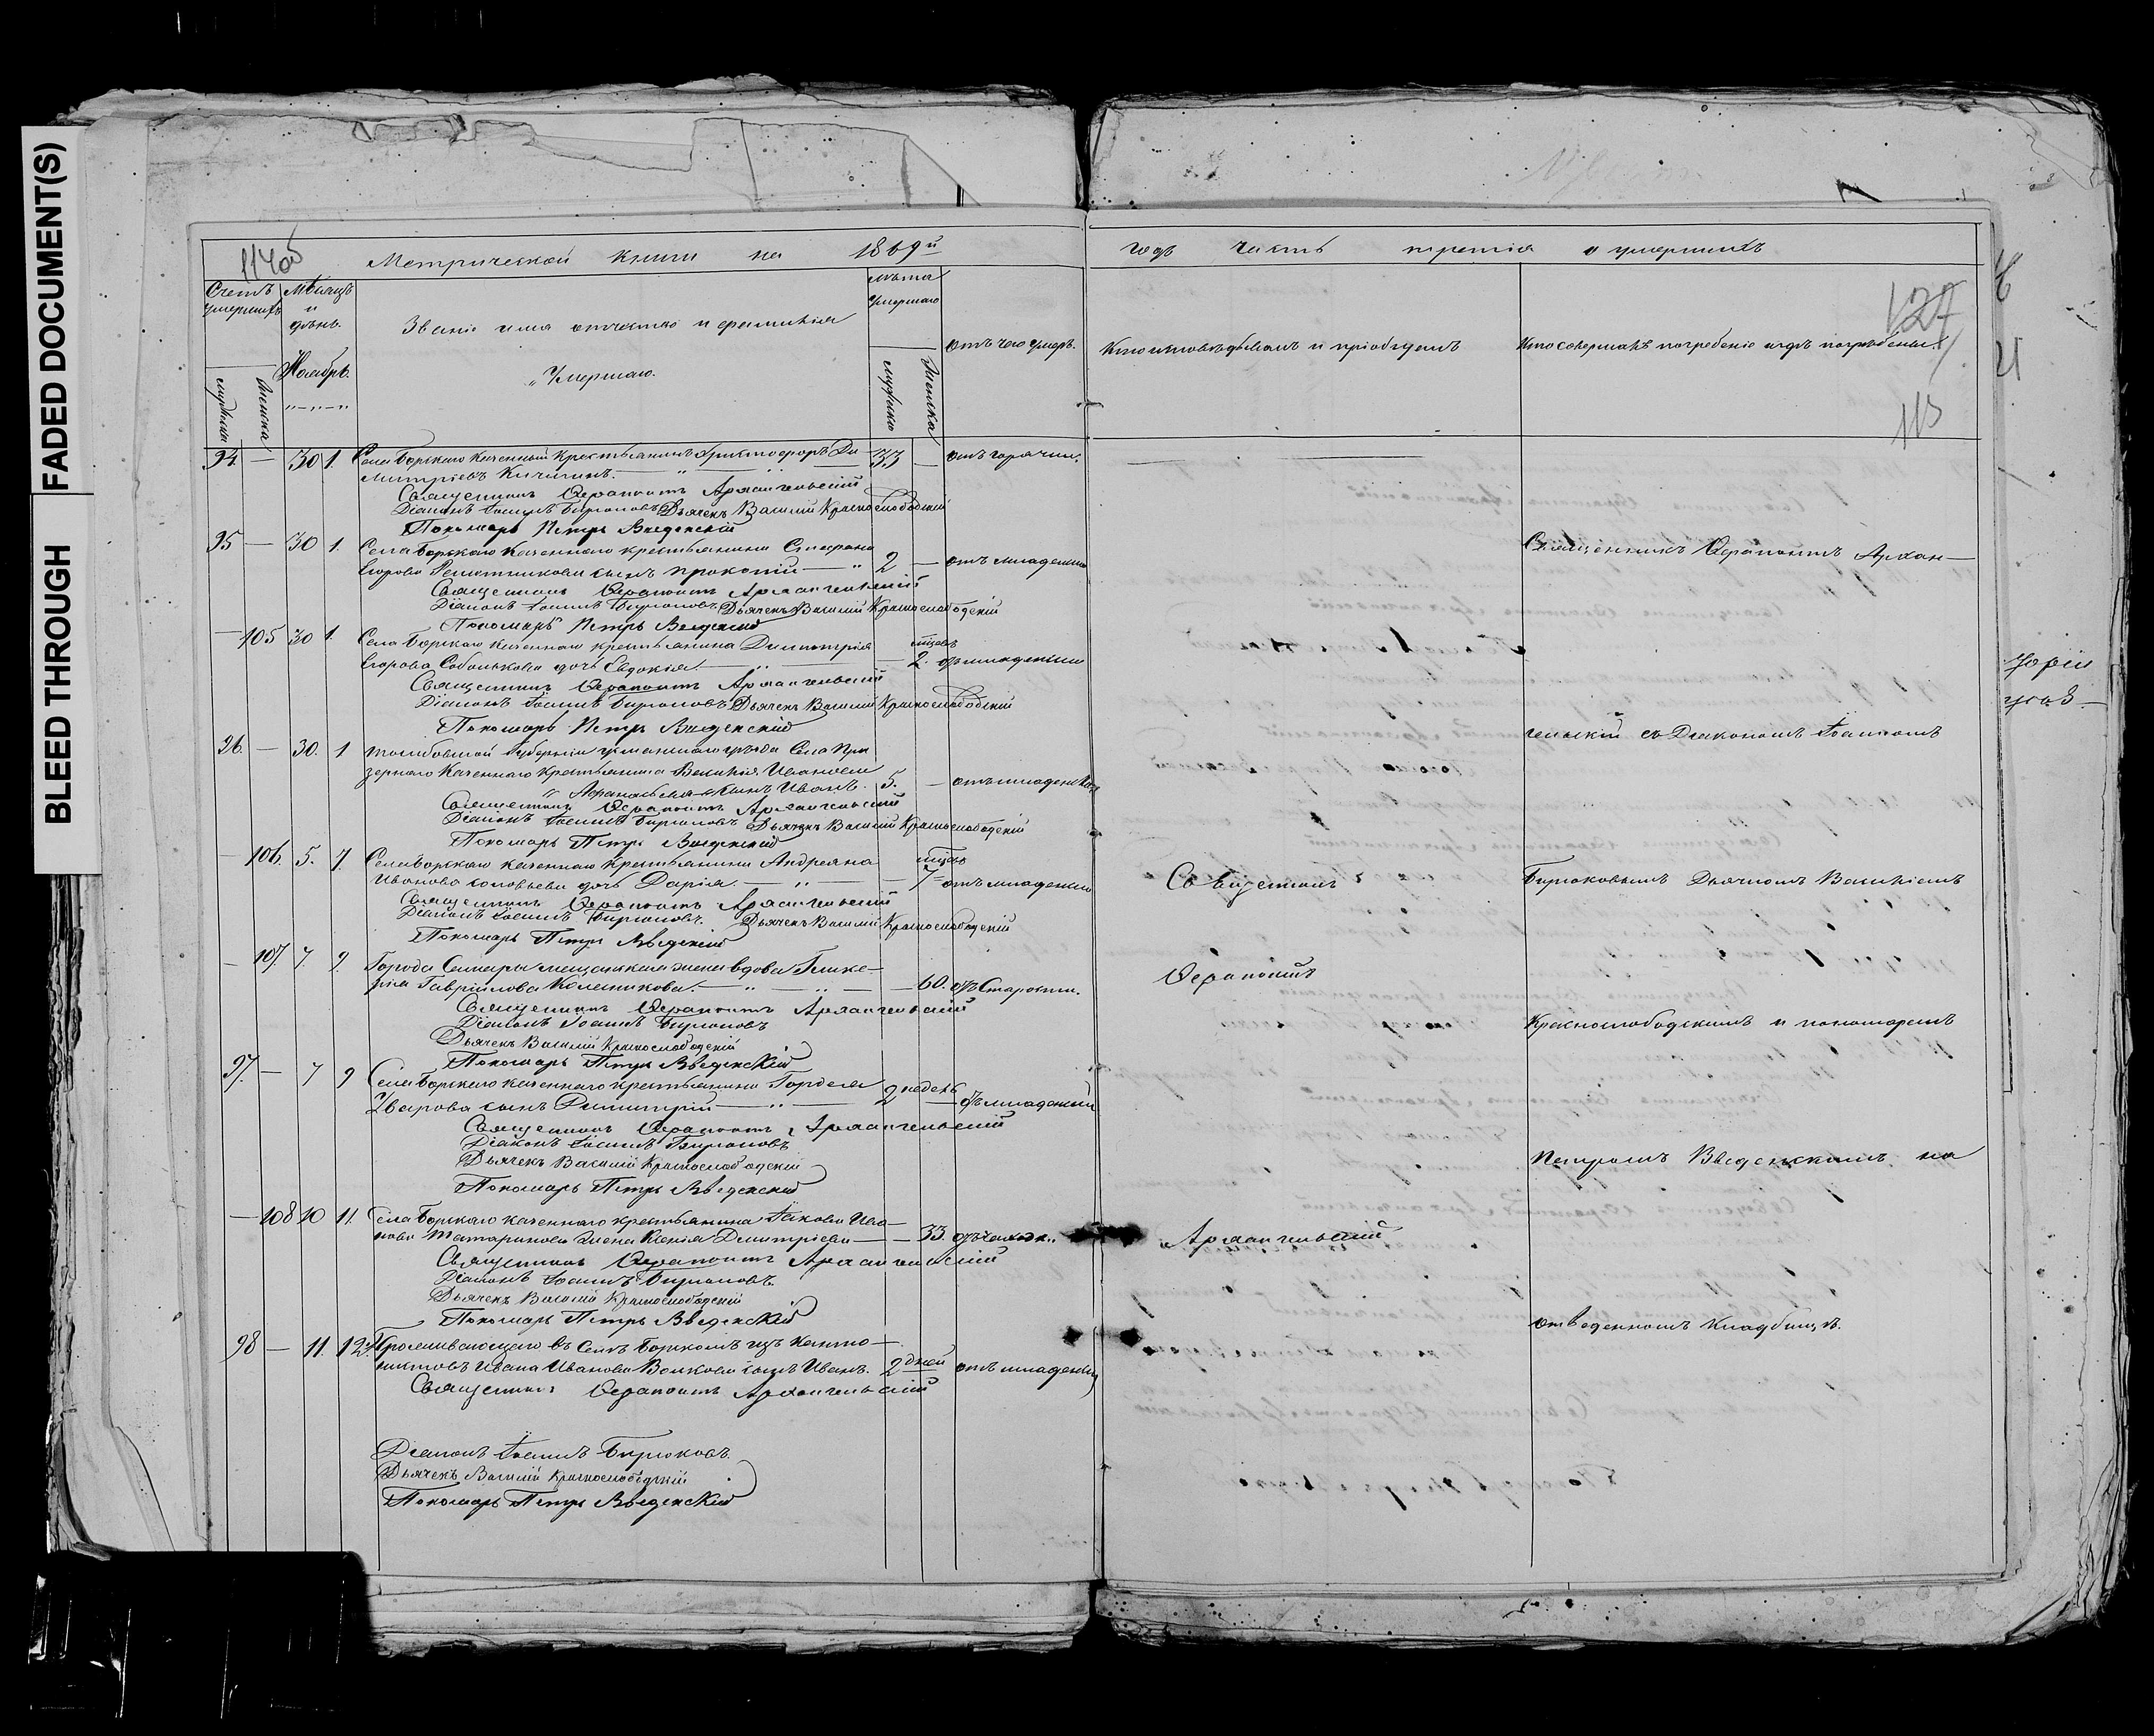 FADED DOCUMENT(S)
BLEED THROUGH
1140б
Метрической книги на 1869й
годъ часть третія о умершихъ
Счетъ умершихъ
Мѣсяцъ и день.
Званіе имя отчество и фамилія
Умершаго.
лѣта Умершаго
отъ чего умеръ.
Кто исповѣдывалъ и пріобщалъ
Кто совершалъ погребеніе и гдѣ погребены.
127
113
Ноябрь.
мужеска
женска
мужеска
Женска
94. — 30 1. Села Борскаго Казенный Крестьянинъ Христофоръ Ди-
митріевъ Кичигинъ. 33 — отъ горячки.
Священникъ Ферапонтъ Архангельскій
Діаконъ Іоаннъ Бирюковъ Дьячекъ Василій Краснослободскій
Пономарь Петръ Введенскій
95 — 30 1. Села Борскаго Казеннаго крестьянина Стефана
Егорова сынъ Прокопій 2 — отъ младенч
Священникъ Ферапонтъ Архангельскій
Діаконъ Іоаннъ Бирюковъ Дьячекъ Василій Краснослободскій
Пономарь Петръ Введенскій
— 105 30 1. Села Борскаго Казеннаго крестьянина Димитрія
Егорова Соболькова дочь Евдокія. — 2. отъ младенчи
Священникъ Ферапонтъ Архангельскій
Діаконъ Іоаннъ Бирюковъ Дьячекъ Василій Краснослободскій
Пономарь Петръ Введенскій
96. — 30. 1 Тамбовской Губерніи уѣзда Села При
Казеннаго Крестьянина Василія Иванова
сынъ Иванъ. 5. — отъ младенч
Священникъ Ферапонтъ Архангельскій
Діаконъ Іоаннъ Бирюковъ Дьячекъ Василій Краснослободскій
Пономарь Петръ Введенскій
— 106. 5. 7. Села Борскаго казеннаго Крестьянина Андреяна
Иванова Соловьева дочь Дарія. — 7 отъ младенчи
Священникъ Ферапонтъ Архангельскій
Діаконъ Іоаннъ Бирюковъ. Дьячекъ Василій Краснослободскій
Пономарь Петръ Введенскій
— 107. 7. 9. Города Самары мещанская жена вдова Глике-
рія Гавріилова Калашникова. — 60. отъ Старости.
Священникъ Ферапонтъ Архангельскій
Діаконъ Іоаннъ Бирюковъ
Дьячекъ Василій Краснослободскій
Пономарь Петръ Введенскій
97. — 7 9 Села Борскаго казеннаго крестьянина Гордея
Уварова сынъ Димитрій 2 недель — отъ младенчи
Священникъ Ферапонтъ Архангельскій
Діаконъ Іоаннъ Бирюковъ
Дьячекъ Василій Краснослободскій
Пономарь Петръ Введенскій
— 108 10 11. Села Борскаго казеннаго крестьянина Іакова Ива-
нова Татаринова жена Ксенія Димитріева — 33.
Священникъ Ферапонтъ Архангельскій
Діаконъ Іоаннъ Бирюковъ.
Дьячекъ Василій Краснослободскій
Пономарь Петръ Введенскій
98 — 11. 12. Проживающаго въ Селѣ Борскомъ изъ Канто-
нистовъ Ивана Иванова Волкова сынъ Иванъ. 2 дней отъ младенч
Священникъ Ферапонтъ Архангельскій
Діаконъ Іоаннъ Бирюковъ.
Дьячекъ Василій Краснослободскій
Пономарь Петръ Введенскій
Священникъ
Ферапонтъ
Архангельскій
Священникъ Ферапонтъ Архан-
гельскій съ Діакономъ Іоанномъ
Бирюковымъ Дьячкомъ Василіемъ
Краснослободскимъ и пономаремъ
Петромъ Введенскимъ на
отведенномъ Кладбищѣ.